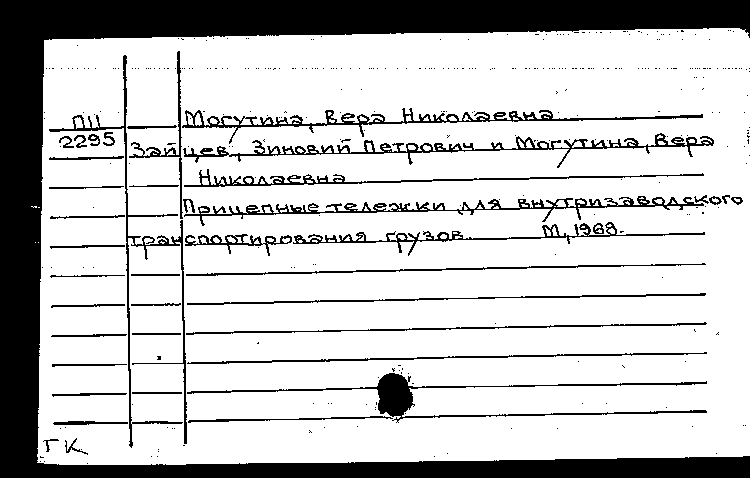 ПII Могутина, Вера Николаевна
2295 Зайцев, Зиновий Петрович и Могутина, Вера
Николаевна
Прицепные тележки для внутризаводского
транспортирования грузов. М, 1968.
ГК